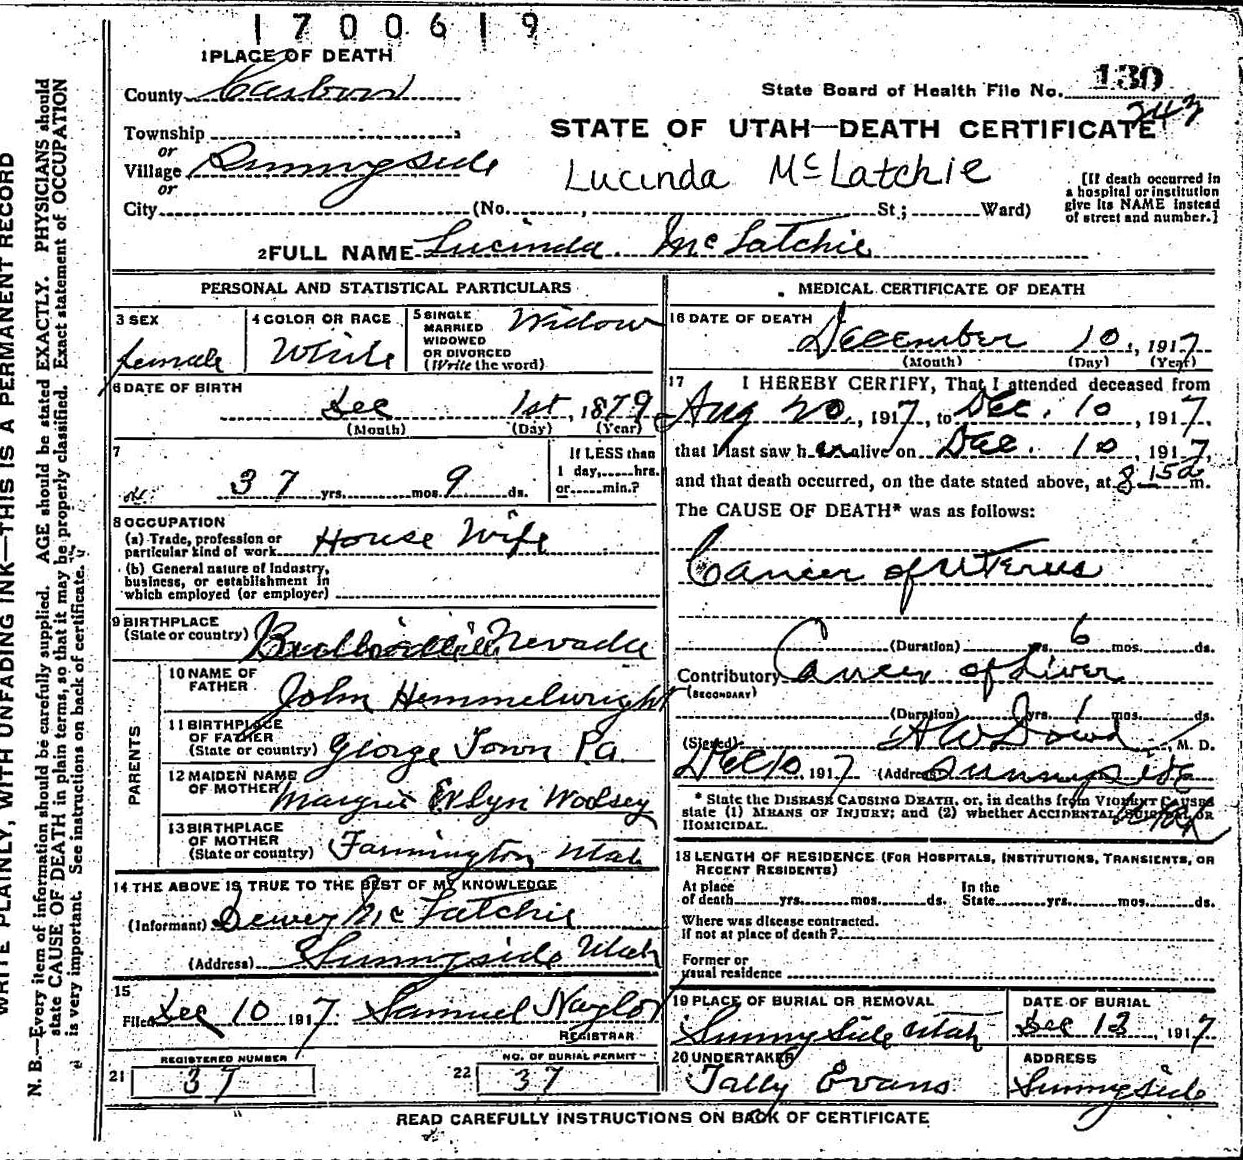 1700619
1 PLACE OF DEATH
County Carbon
State Board of Health File No. 130
243
Township
or
Village Sunnyside
or
City (No. , St.; Ward)
STATE OF UTAH—DEATH CERTIFICATE
Lucinda McLatchie
[If death occurred in
a hospital or institution
give its NAME instead
of street and number.]
2 FULL NAME Lucinda McLatchie
PERSONAL AND STATISTICAL PARTICULARS
3 SEX
female
4 COLOR OR RACE
White
5 SINGLE
MARRIED
WIDOWED
OR DIVORCED
(Write the word)
Widow
6 DATE OF BIRTH
Dec 1st, 1879
(Month) (Day) (Year)
7
37 yrs. mos. 9 ds.
If LESS than
1 day, hrs.
or min.?
8 OCCUPATION
(a) Trade, profession or
particular kind of work House Wife
(b) General nature of Industry,
business, or establishment in
which employed (or employer)
9 BIRTHPLACE
(State or country) Nevada
PARENTS
10 NAME OF
FATHER John Hemmelwright
11 BIRTHPLACE
OF FATHER
(State or country) George Town Pa.
12 MAIDEN NAME
OF MOTHER Margret Evlyn Woolsey
13 BIRTHPLACE
OF MOTHER
(State or country) Farmington Utah
14 THE ABOVE IS TRUE TO THE BEST OF MY KNOWLEDGE
(Informant) Dewey McLatchie
(Address) Sunnyside Utah
15
Filed Dec 10 1917. Samuel Naylor
REGISTRAR
REGISTERED NUMBER
21 37
NO. OF BURIAL PERMIT
22 37
MEDICAL CERTIFICATE OF DEATH
16 DATE OF DEATH
December 10, 1917
(Month) (Day) (Year)
17 I HEREBY CERTIFY, That I attended deceased from
Aug 20, 1917, to Dec. 10, 1917,
that I last saw her alive on Dec. 10, 1917,
and that death occurred, on the date stated above, at 8 15 a m.
The CAUSE OF DEATH* was as follows:
Cancer of Uterus
(Duration) yrs. 6 mos. ds.
Contributory Cancer of Liver
(SECONDARY)
(Duration) yrs. 1 mos. ds.
(Signed) A W Dowd, M. D.
Dec 10, 1917 (Address) Sunnyside
Utah
* State the DISEASE CAUSING DEATH, or, in deaths from VIOLENT CAUSES
state (1) MEANS OF INJURY; and (2) whether ACCIDENTAL, SUICIDAL OR
HOMICIDAL.
18 LENGTH OF RESIDENCE (FOR HOSPITALS, INSTITUTIONS, TRANSIENTS, OR
RECENT RESIDENTS)
At place
of death yrs. mos. ds.
In the
State yrs. mos. ds.
Where was disease contracted.
If not at place of death?
Former or
usual residence
19 PLACE OF BURIAL OR REMOVAL
Sunnyside Utah
DATE OF BURIAL
Dec 12, 1917
20 UNDERTAKER
Tally Evans
ADDRESS
Sunnyside
READ CAREFULLY INSTRUCTIONS ON BACK OF CERTIFICATE
WRITE PLAINLY, WITH UNFADING INK—THIS IS A PERMANENT RECORD
N. B.—Every item of information should be carefully supplied. AGE should be stated EXACTLY. PHYSICIANS should
state CAUSE OF DEATH in plain terms, so that it may be properly classified. Exact statement of OCCUPATION
is very important. See instructions on back of certificate.